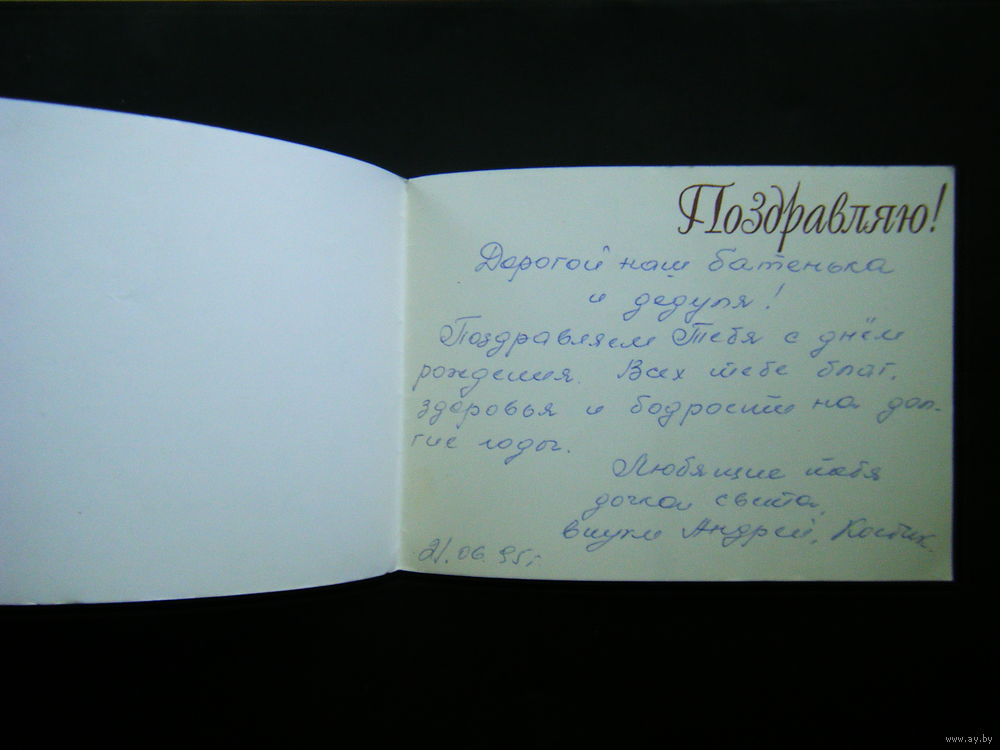 Поздравляю!
Дорогой наш батенька
и дедуля!
Поздравляем Тебя с днём
рождения. Всех тебе благ,
здоровья и бодрости на дол-
гие годы.
Любящие тебя
дочка света,
внуки Андрей, Костик.
21.06.95г.
www.ay.by